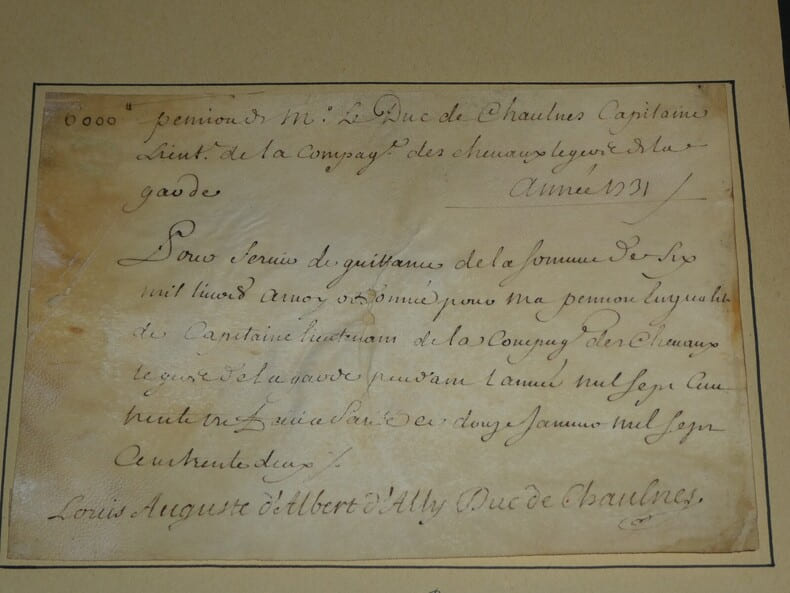 6000ᵗᵗ pension de Mʳ Le Duc de Chaulnes Capitaine
Lieutᵗ de la Compagᵉ des chevaux legers de la
garde
Année 1731
Pour servir de quittance de la somme de six
mil livres a moy ordonnée pour ma pension en qualité
de Capitaine lieutenant de la Compagᵉ des Chevaux
legers de la garde pendant l'année mil sept cens
trente un fait a Paris ce douze Janvier mil sept
Cens trente deux
Louis Auguste d'Albert d'Ally Duc de Chaulnes